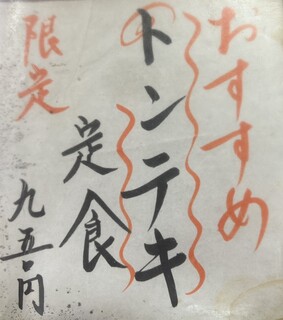 おすすめ
トンテキ
定食
限定
九五〇円